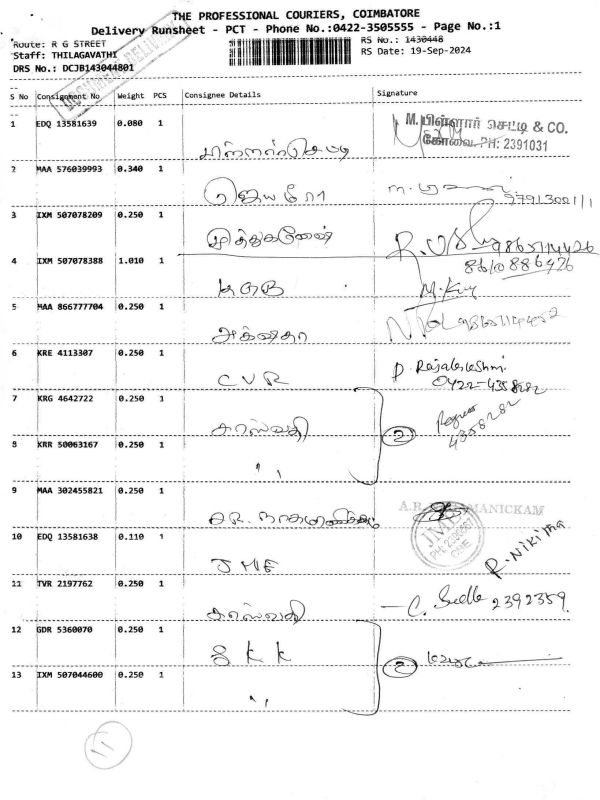 THE PROFESSIONAL COURIERS, COIMBATORE
Delivery Runsheet - PCT - Phone No.:0422-3505555 - Page No.:1
Route: R G STREET
RS No.: 1430448
Staff: THILAGAVATHI
RS Date: 19-Sep-2024
DRS No.: DCJB143044801
S No Consignment No Weight PCS Consignee Details Signature
1 EDQ 13581639 0.080 1
M. பிள்ளார் செட்டி & CO.
கோவை. PH: 2391031
2 MAA 576039993 0.340 1 ஜெயமோ
3 IXM 507078209 0.250 1 முத்துகணேஷ்
8610886926
4 IXM 507078388 1.010 1 KGB
5 MAA 866777704 0.250 1 அக்ஷிதா
6 KRE 4113307 0.250 1 CVR P. Rajalakshmi
0422-4358282
7 KRG 4642722 0.250 1 சரஸ்வதி 2
4358282
8 KRR 50063167 0.250 1 ,,
9 MAA 302455821 0.250 1 AR. நாகமாணிக்கம் A.R. MANICKAM
10 EDQ 13581638 0.110 1 JME JME R. Nikitha
11 TVR 2197762 0.250 1 சரஸ்வதி 2392359
12 GDR 5360070 0.250 1 SKK 2
13 IXM 507044600 0.250 1 ,,
11